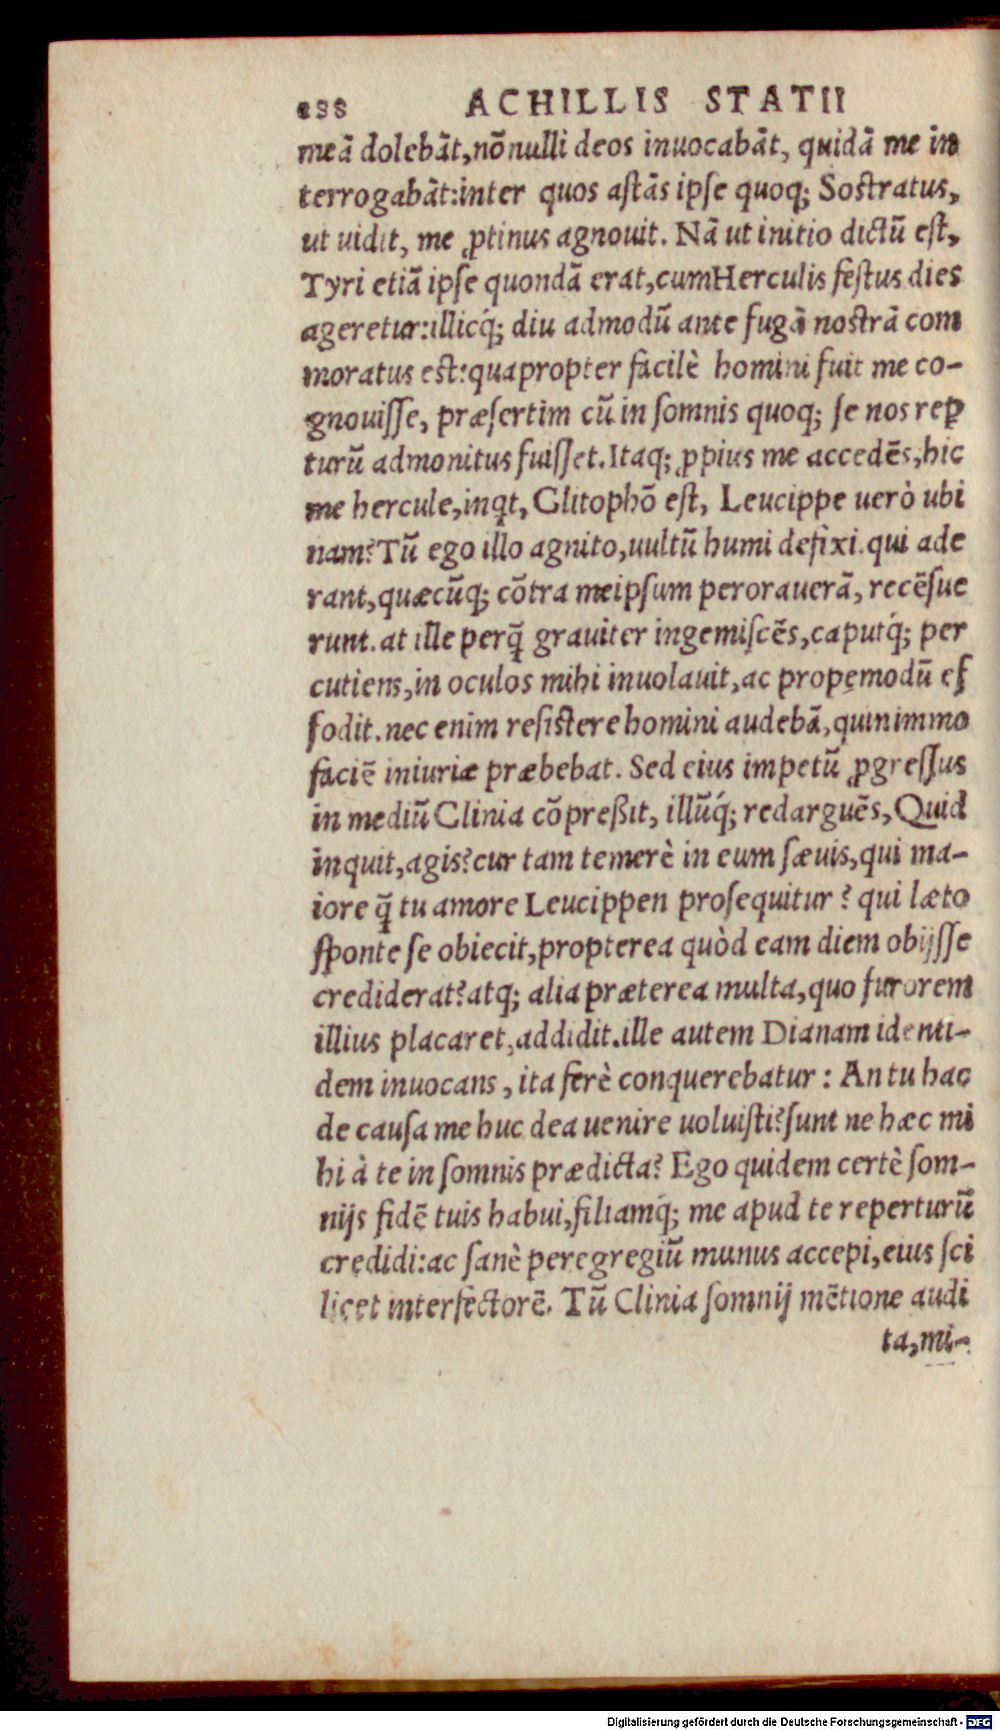 138 ACHILLIS STATII
meā dolebāt, nōnulli deos inuocabāt, quidā me in
terrogabāt: inter quos aſtās ipſe quoq; Soſtratus,
ut uidit, me ꝓtinus agnouit. Nā ut initio dictū eſt,
Tyri etiā ipſe quondā erat, cum Herculis feſtus dies
ageretur: illicq́; diu admodū ante fugā noſtrā com
moratus eſt: quapropter facilè homini fuit me co-
gnouiſſe, præſertim cū in ſomnis quoq; ſe nos reꝑ
turū admonitus fuiſſet. Itaq; ꝓpius me accedēs, hic
me hercule, inqt, Clitophō eſt, Leucippe uerò ubi
nam? Tū ego illo agnito, uultū humi defixi. qui ade
rant, quæcūq; cōtra meipſum perorauerā, recēſue
runt. at ille perq̄ grauiter ingemiſcēs, caputq́; per
cutiens, in oculos mihi inuolauit, ac propemodū ef
fodit. nec enim reſiſtere homini audebā, quinimmo
faciē iniuriæ præbebat. Sed eius impetū ꝓgreſſus
in mediū Clinia cōpreßit, illūq́; redarguēs, Quid
inquit, agis? cur tam temerè in eum ſæuis, qui ma-
iore q̄ tu amore Leucippen proſequitur? qui læto
ſponte ſe obiecit, propterea quòd eam diem obijſſe
crediderat? atq; alia præterea multa, quo furorem
illius placaret, addidit. ille autem Dianam identi-
dem inuocans, ita ferè conquerebatur: An tu hac
de cauſa me huc dea uenire uoluiſti? ſunt ne hæc mi
hi à te in ſomnis prædicta? Ego quidem certè ſom-
nijs fidē tuis habui, filiamq́; me apud te reperturū
credidi: ac ſanè peregregiū munus accepi, eius ſci
licet interfectorē. Tū Clinia ſomnij mētione audi
ta, mi-
Digitalisierung gefördert durch die Deutsche Forschungsgemeinschaft - DFG